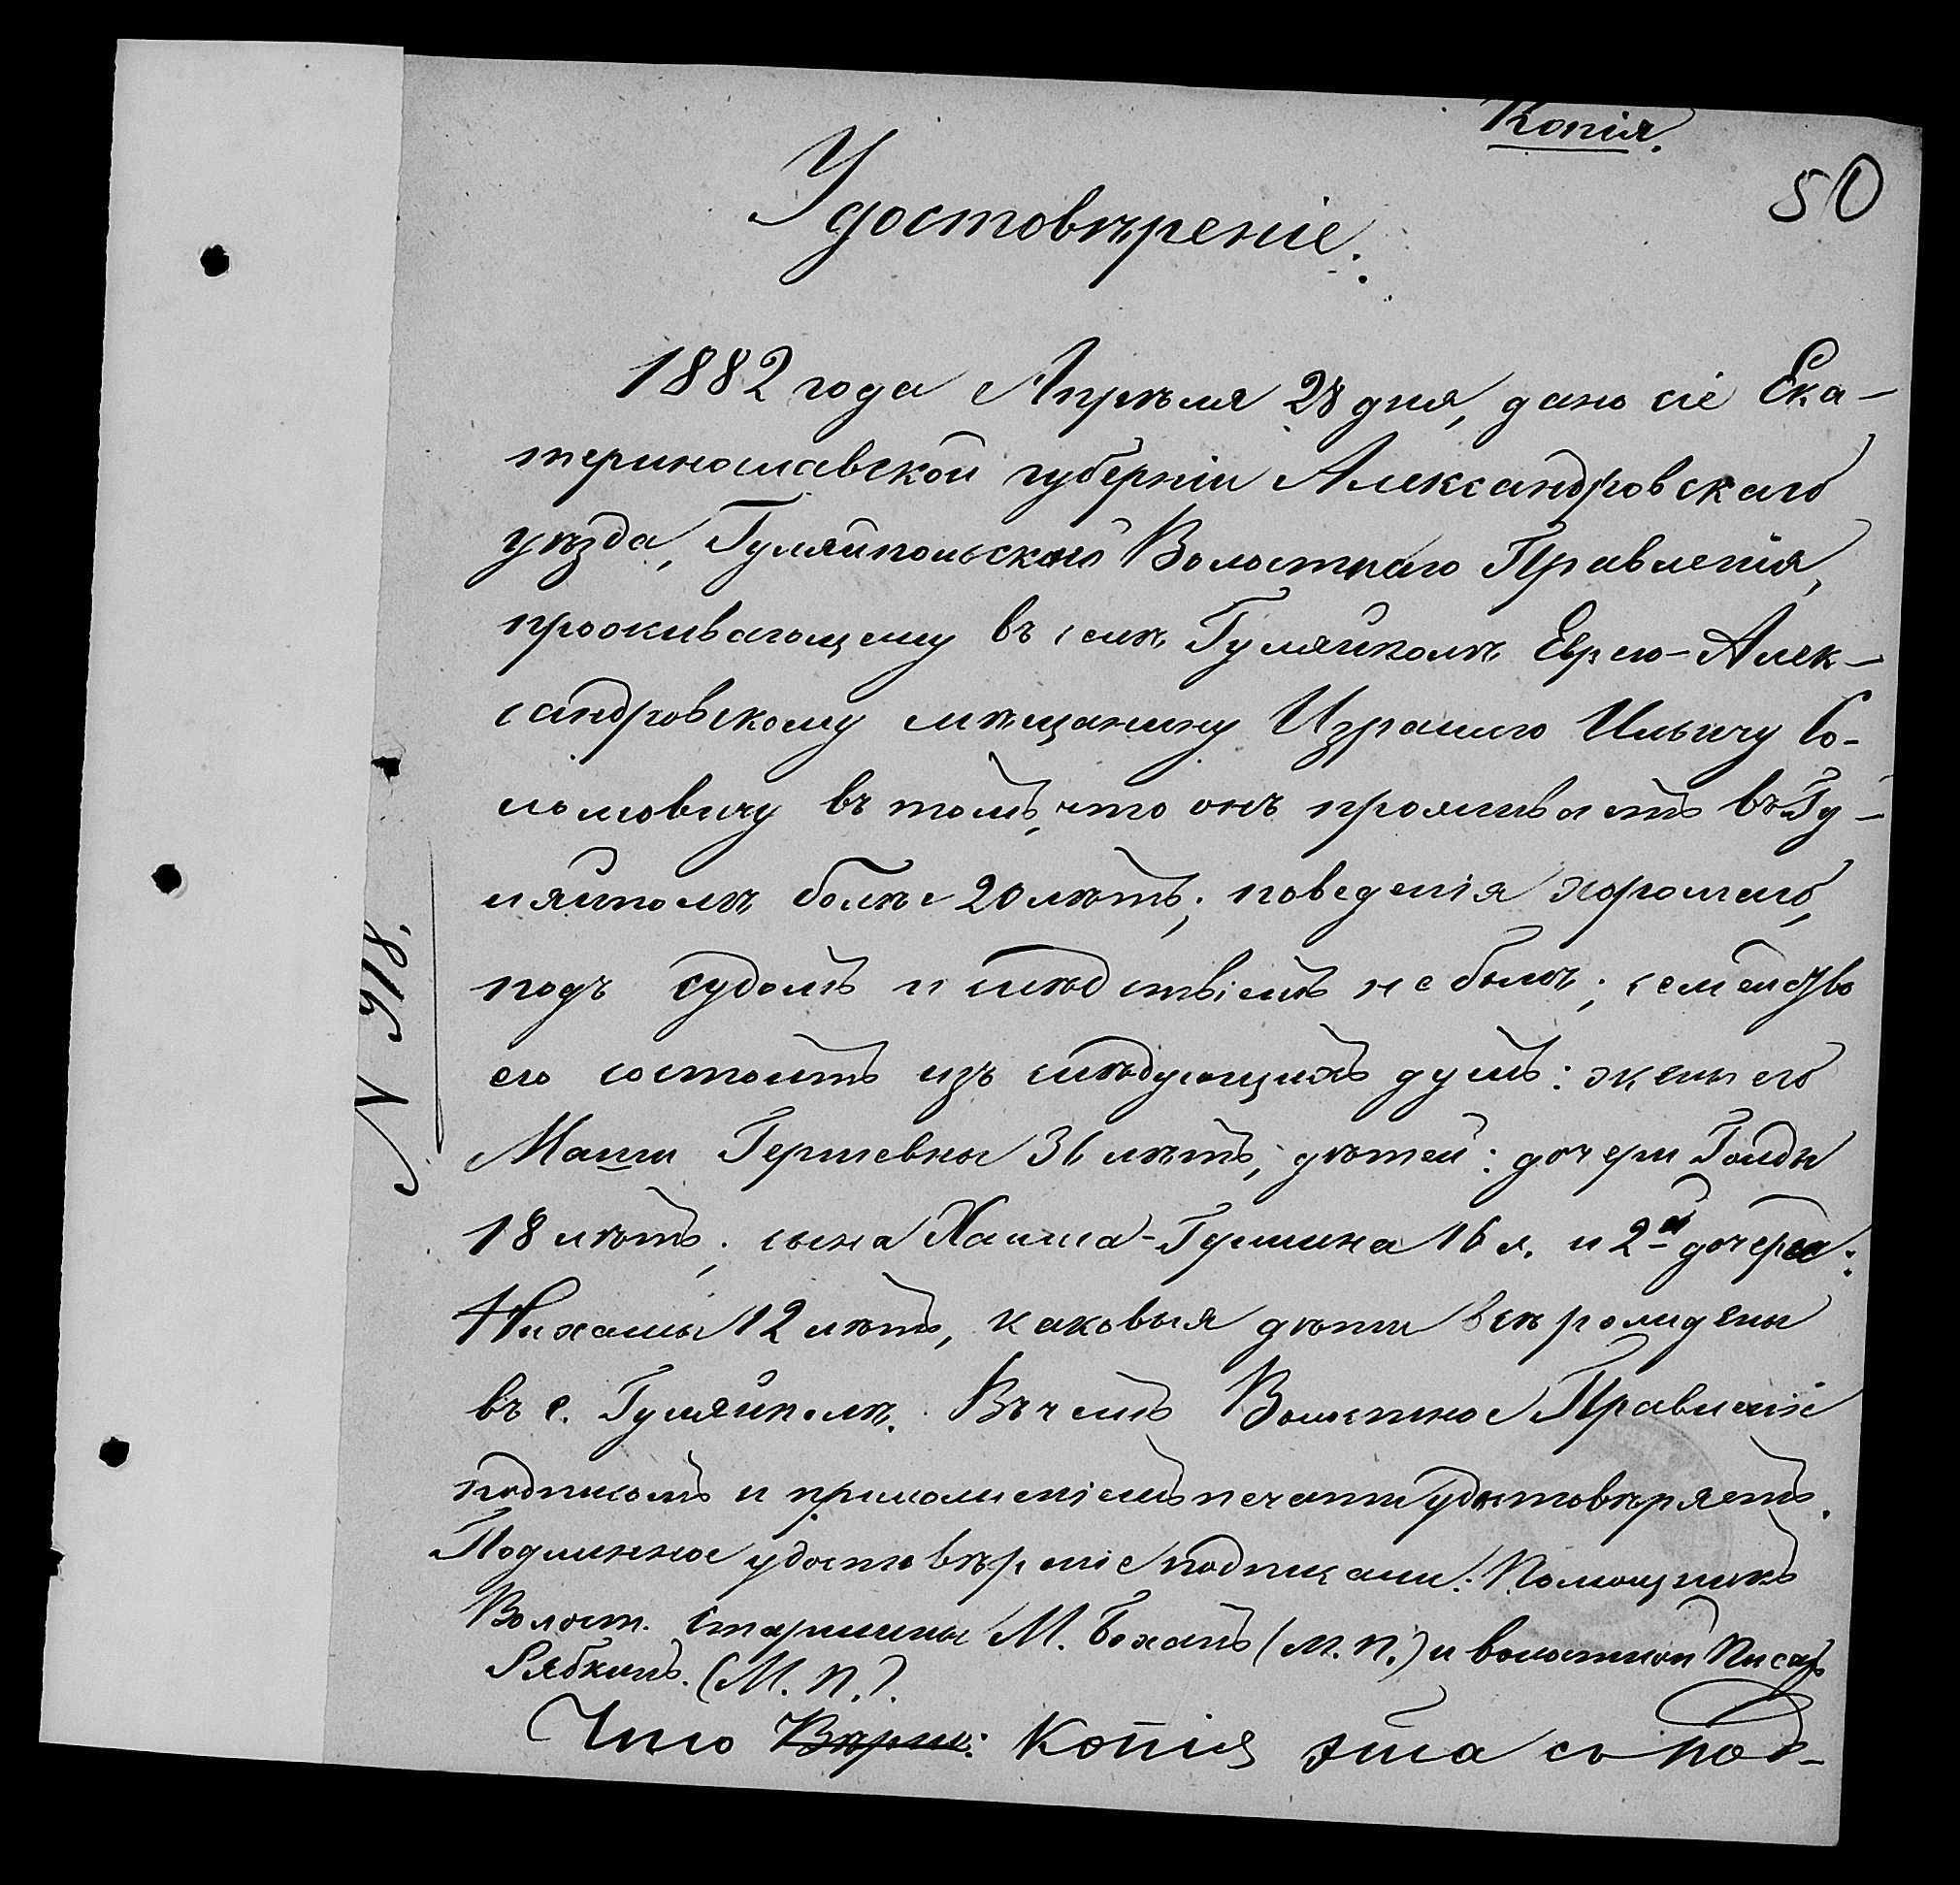 Копія.
50
Удостовѣреніе.
1882 года Апрѣля 28 дня, дано сіе Ека-
теринославской губерніи Александровскаго
уѣзда, Гуляйпольскаго Волостнаго Правленія,
проживающему въ селѣ Гуляйполѣ Еврею-Алек-
сандровскому мѣщанину Израилю Ильичу Со-
ломовичу въ томъ, что онъ проживаетъ въ Гу-
ляйполѣ болѣе 20 лѣтъ; поведенія хорошаго,
подъ судомъ и слѣдствіемъ не былъ; семейство
его состоитъ изъ слѣдующихъ душъ: жены его
Маши Гершевны 36 лѣтъ, дѣтей: дочери Голды
18 лѣтъ, сына Хаима- 16 л. и 2й дочери:
12 лѣтъ, каковыя дѣти всѣ рождены
въ с. Гуляйполѣ. Въ чемъ Волостное Правленіе
подписомъ и приложеніемъ печати удостовѣряетъ.
Подлинное удостовѣреніе подписали: Помощникъ
Волост. Старшины М. Боханъ (М. П.) и волостной Писарь
Рябкинъ. (М. П.).
Что Вѣрно: копія эта съ под-
N 918.